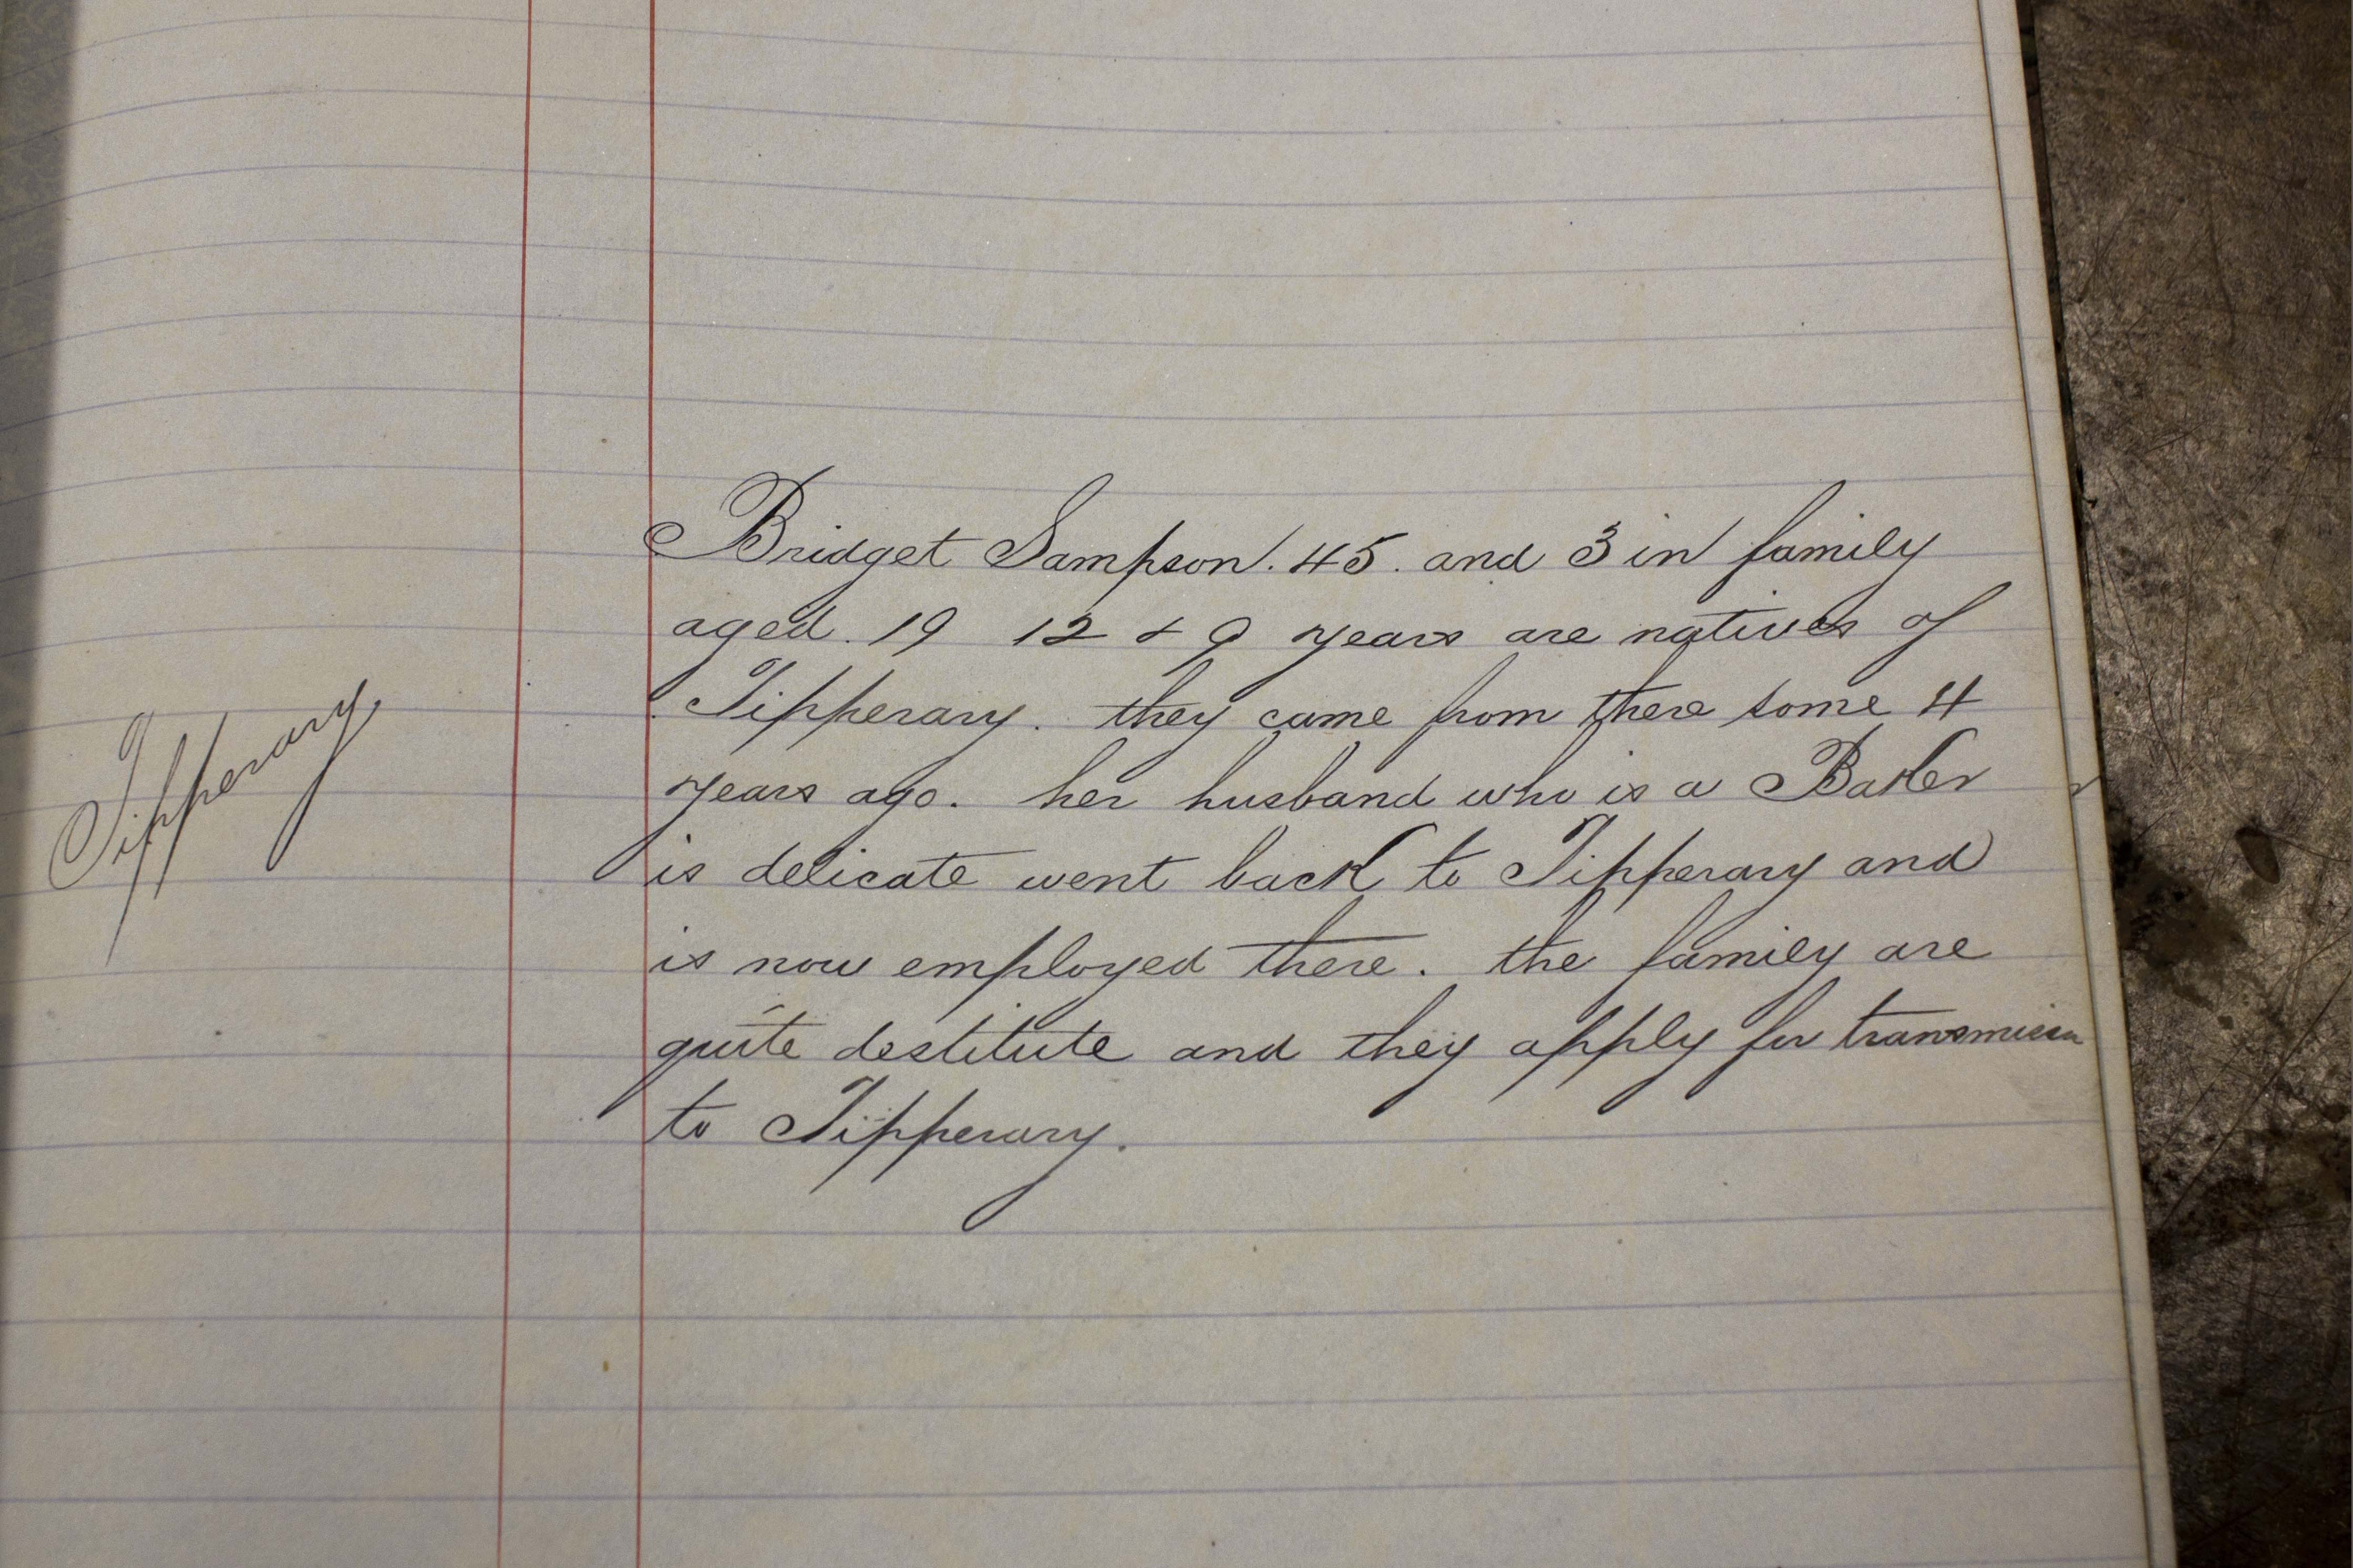 Bridget Sampson. 45. and 3 in family
aged. 19 12 & 9 years are natives of
Tipperary. they came from there some 4
years ago. her husband who is a Baker
is delicate went back to Tipperary and
is now employed there. the family are
quite destitute and they apply for transmission
to Tipperary.
Tipperary